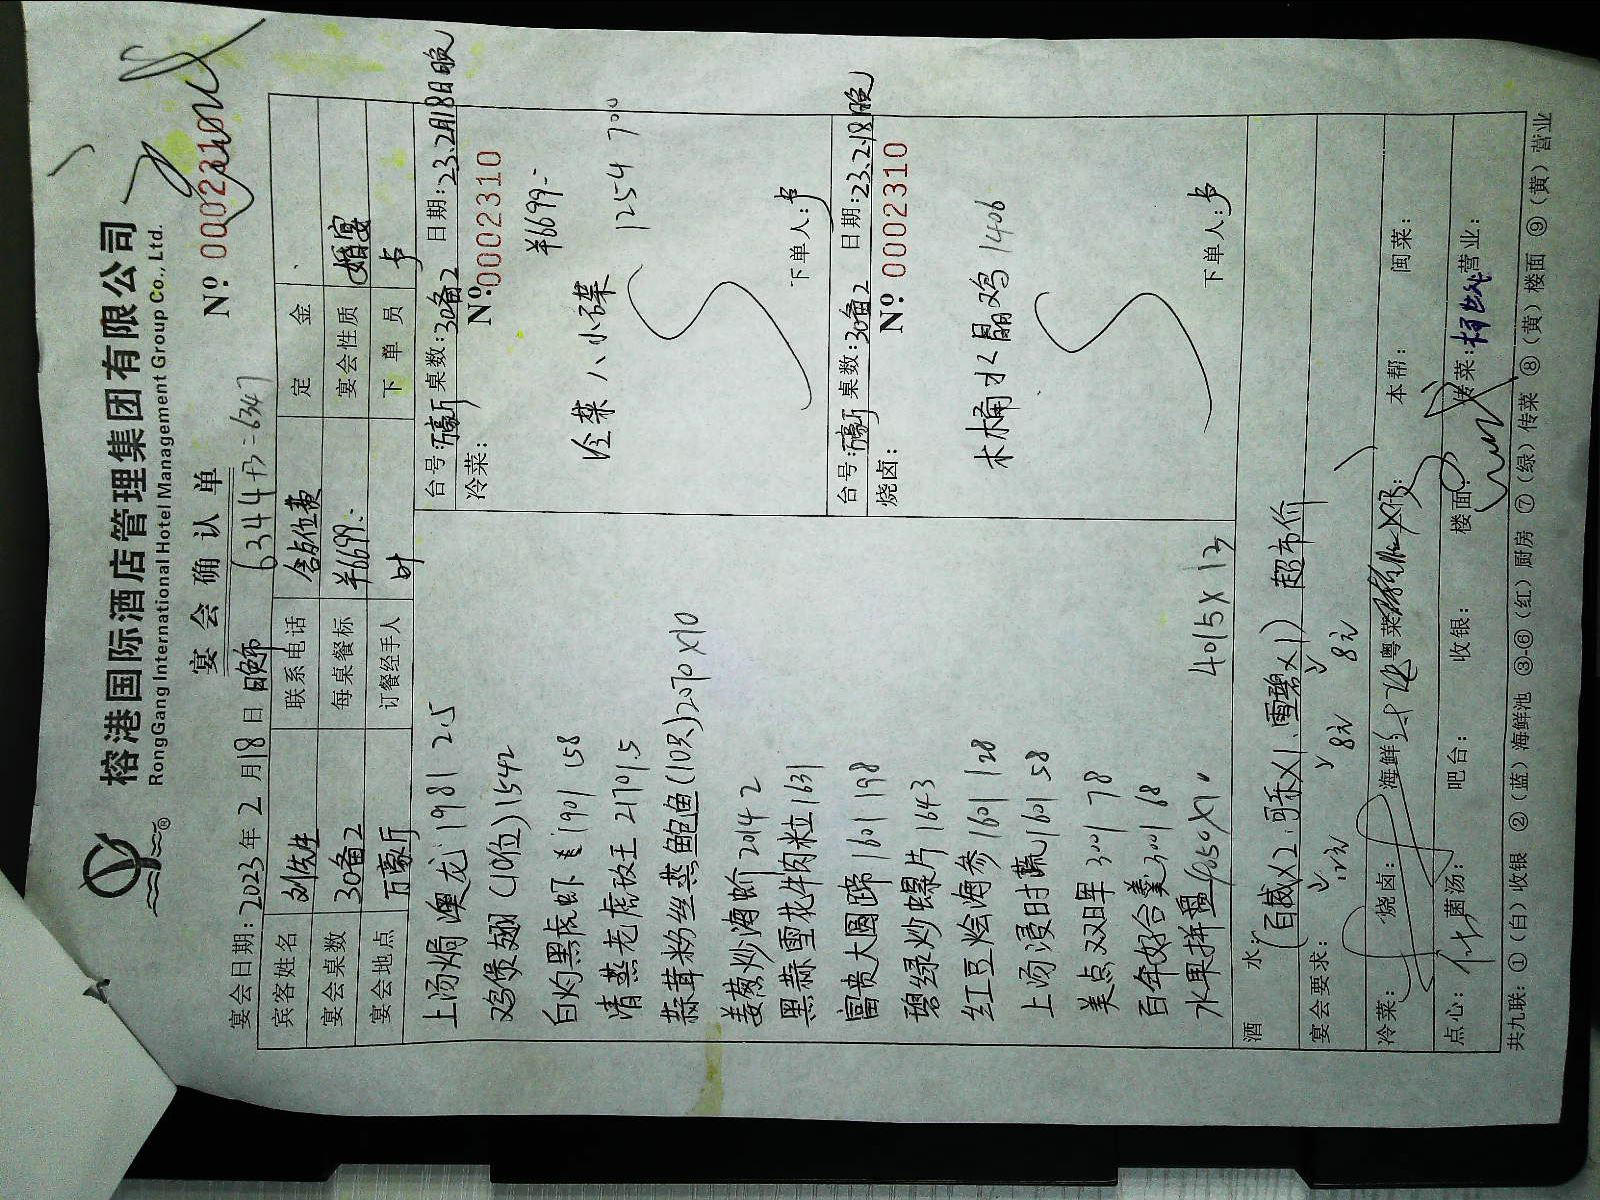 榕港国际酒店管理集团有限公司
RongGang International Hotel Management Group Co., Ltd.
®
宴会确认单
Nº 0002310
宴会日期：2023年2月18日晚 6344
宾客姓名 联系电话 含占位费 定金
宴会桌数 30备2 每桌餐标 ¥6699.- 宴会性质 婚宴
宴会地点 万豪厅 订餐经手人 叶 下单员 卢
上汤焗澳龙 1981 2.5
鸡煲翅(10位) 1542
白灼黑虎虾 1901 158
清蒸老虎敌王 2179 1.5
蒜茸粉丝蒸鲍鱼(10只) 2070X10
姜葱炒海蛤 2014 2
黑蒜雪花牛肉粒 1631
富贵大圆蹄 1601 198
碧绿炒螺片 1643
红豆烩海参 1601 128
上汤浸时蔬 1601 58
美点双双单 3001 78
百年好合羹 3001 68
水果拼盘 4050X1 4015X13
台号：万豪厅 桌数：30备2 日期：23.2月18日晚
冷菜：
Nº 0002310
¥6699.-
冷菜八小碟 1254 700
下单人：卢
台号：万豪厅 桌数：30备2 日期：23.2.18晚
烧卤：
Nº 0002310
木桶水晶鸡 1406
下单人：卢
酒水：(百威X2.可乐X1.雪碧X1) 超市价
宴会要求： 12元 8元 8元
冷菜： 烧卤： 海鲜： 粤菜： 本帮： 闽菜：
点心： 菌汤： 吧台： 收银： 楼面： 传菜： 营业：
共九联：①(白)收银 ②(蓝)海鲜池 ③-⑥(红)厨房 ⑦(绿)传菜 ⑧(黄)楼面 ⑨(黄)营业